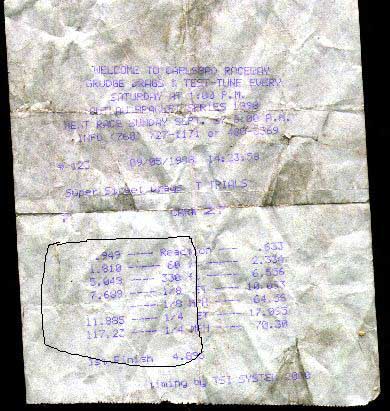 WELCOME TO CARLSBAD RACEWAY
GRUDGE DRAGS & TEST-TUNE EVERY
SATURDAY AT 1:00 P.M.
SERIES 1998
NEXT RACE SUNDAY SEPT. 8:00 A.M.
INFO (760) 727-1171 or
09/05/1998 14:23:58
Super Street Drags T TRIALS
CAR# 2
.949 ---- Reaction ---- .633
1.810 ---- 60 ---- 2.334
5.049 ---- 330 ---- 6.556
7.689 ---- 1/8 ET ----
---- 1/8 MPH ----
11.985 ---- 1/4 ET ----
117.23 ---- 1/4 MPH ---- 70.30
1st Finish
Timing by TSI SYSTEM